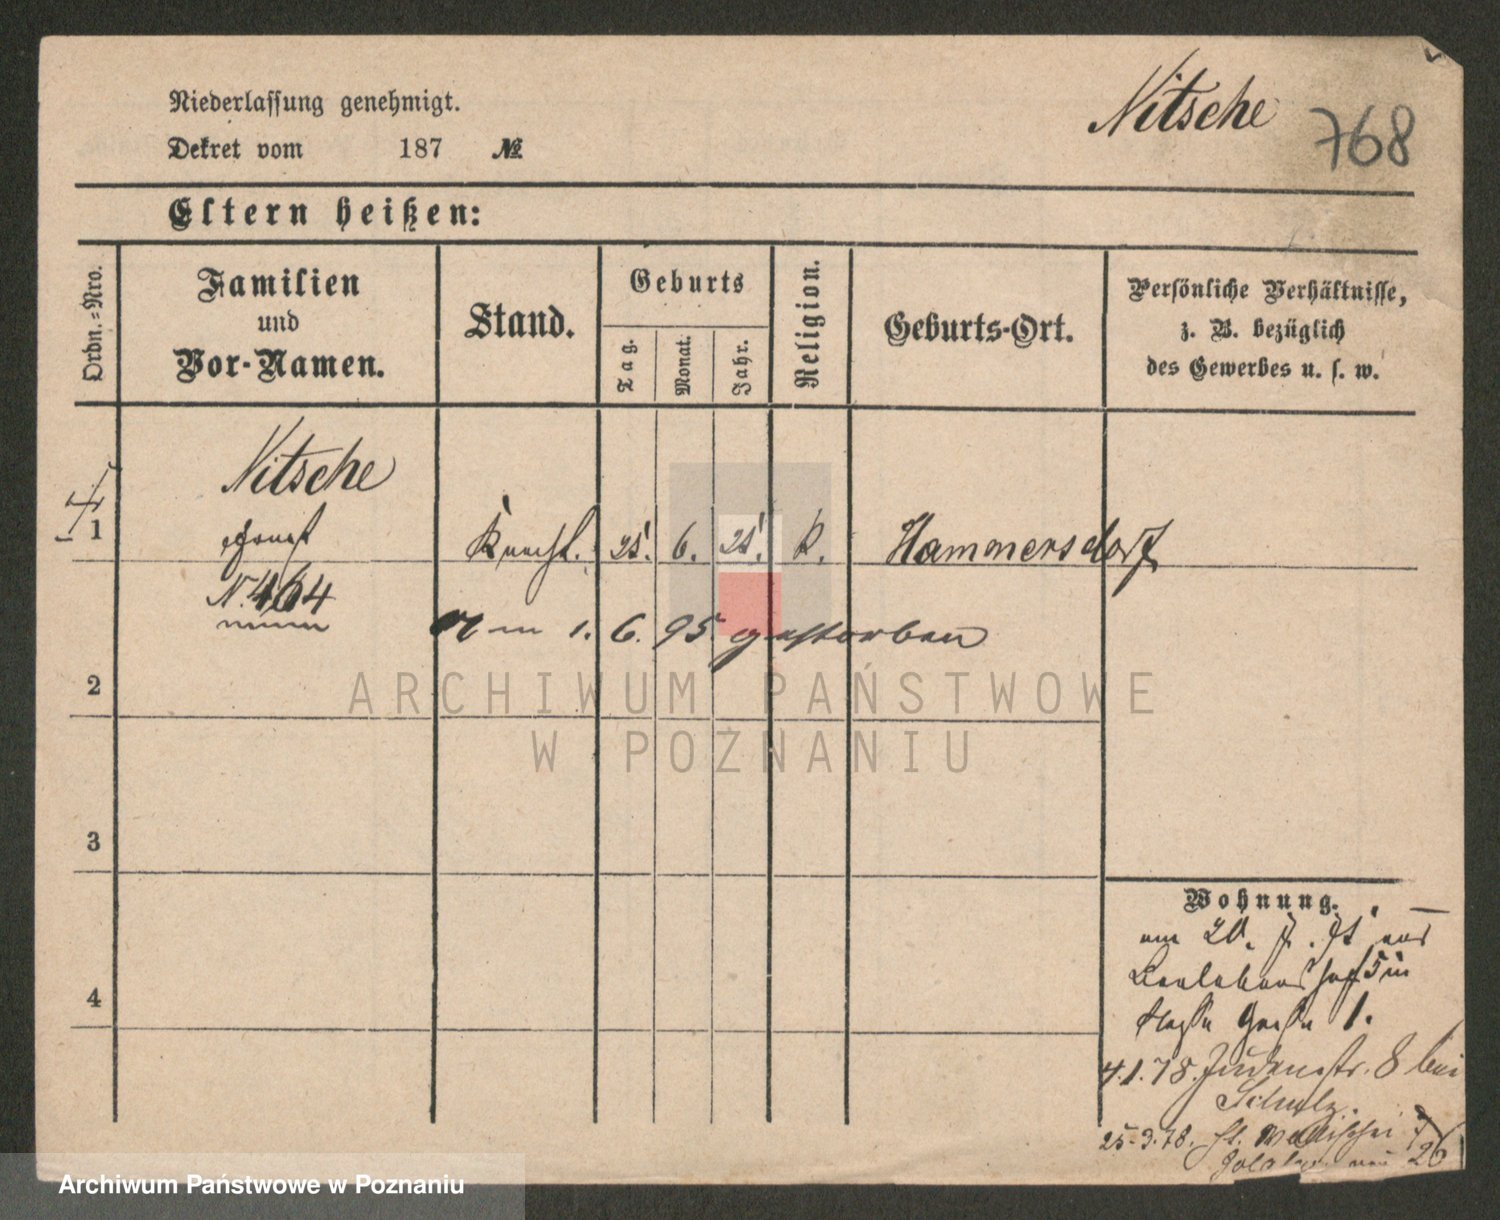 Niederlassung genehmigt.
Dekret vom 187 №
Nitsche
768
Eltern heißen:
Ordn.-Nro.
Familien
und
Vor-Namen.
Stand.
Geburts
Tag.
Monat.
Jahr.
Religion.
Geburts-Ort.
Persönliche Verhältnisse,
z. B. bezüglich
des Gewerbes u. s. w.
Nitsche
1
Knecht. 25. 6. 25. K. Hammersdorf
N. 464
Am 1. 6. 95. gestorben
2
3
4
Wohnung.
am 20. 7. 75 aus
5 in
Große Gerberstr 1.
4.1.78. Judenstr. 8 bei
Schulz.
25.3.78. St. Wallischei 7
26
ARCHIWUM PAŃSTWOWE
W POZNANIU
Archiwum Państwowe w Poznaniu